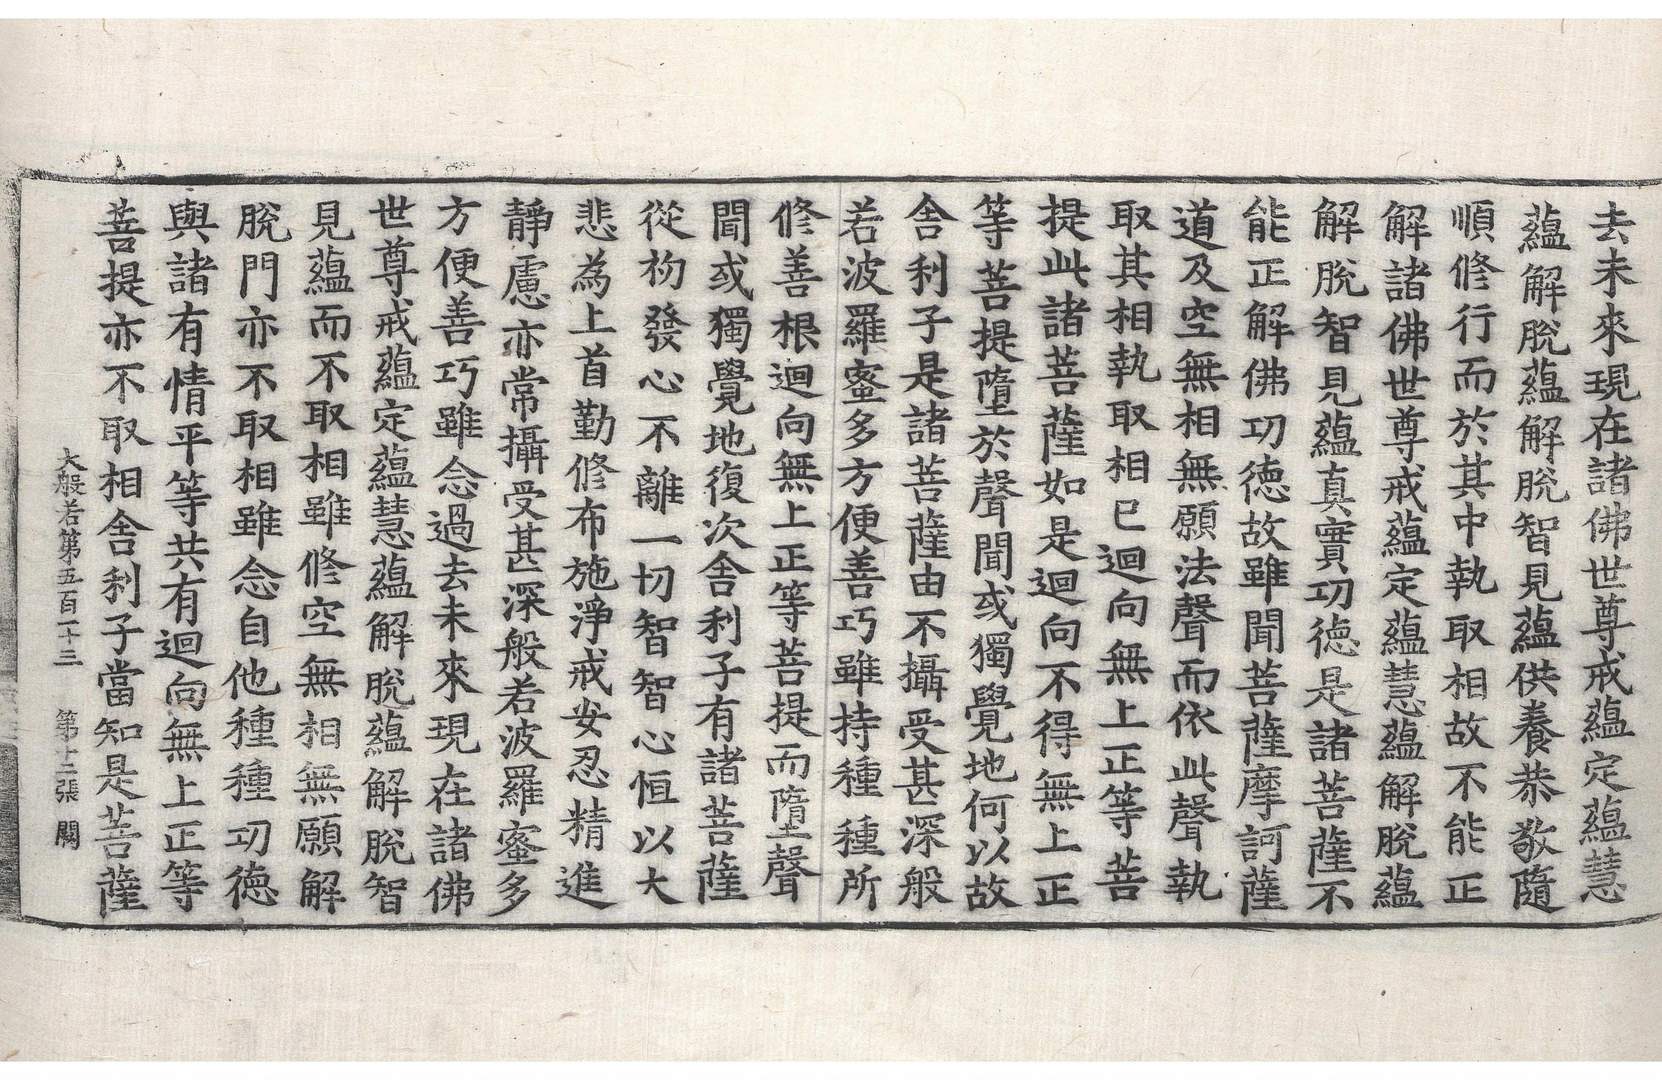 去未來現在諸佛世尊戒蘊定蘊慧
蘊解脫蘊解脫智見蘊供養恭敬隨
順修行而於其中執取相故不能正
解諸佛世尊戒蘊定蘊慧蘊解脫蘊
解脫智見蘊真實功德是諸菩薩不
能正解佛功德故雖聞菩薩摩訶薩
道及空無相無願法聲而依此聲執
取其相執取相已迴向無上正等菩
提此諸菩薩如是迴向不得無上正
等菩提墮於聲聞或獨覺地何以故
舍利子是諸菩薩由不攝受甚深般
若波羅蜜多方便善巧雖持種種所
修善根迴向無上正等菩提而墮聲
聞或獨覺地復次舍利子有諸菩薩
從初發心不離一切智智心恒以大
悲為上首勤修布施淨戒安忍精進
靜慮亦常攝受甚深般若波羅蜜多
方便善巧雖念過去未來現在諸佛
世尊戒蘊定蘊慧蘊解脫蘊解脫智
見蘊而不取相雖修空無相無願解
脫門亦不取相雖念自他種種功德
與諸有情平等共有迴向無上正等
菩提亦不取相舍利子當知是菩薩
大般若第五百一十三 第十二張 闕